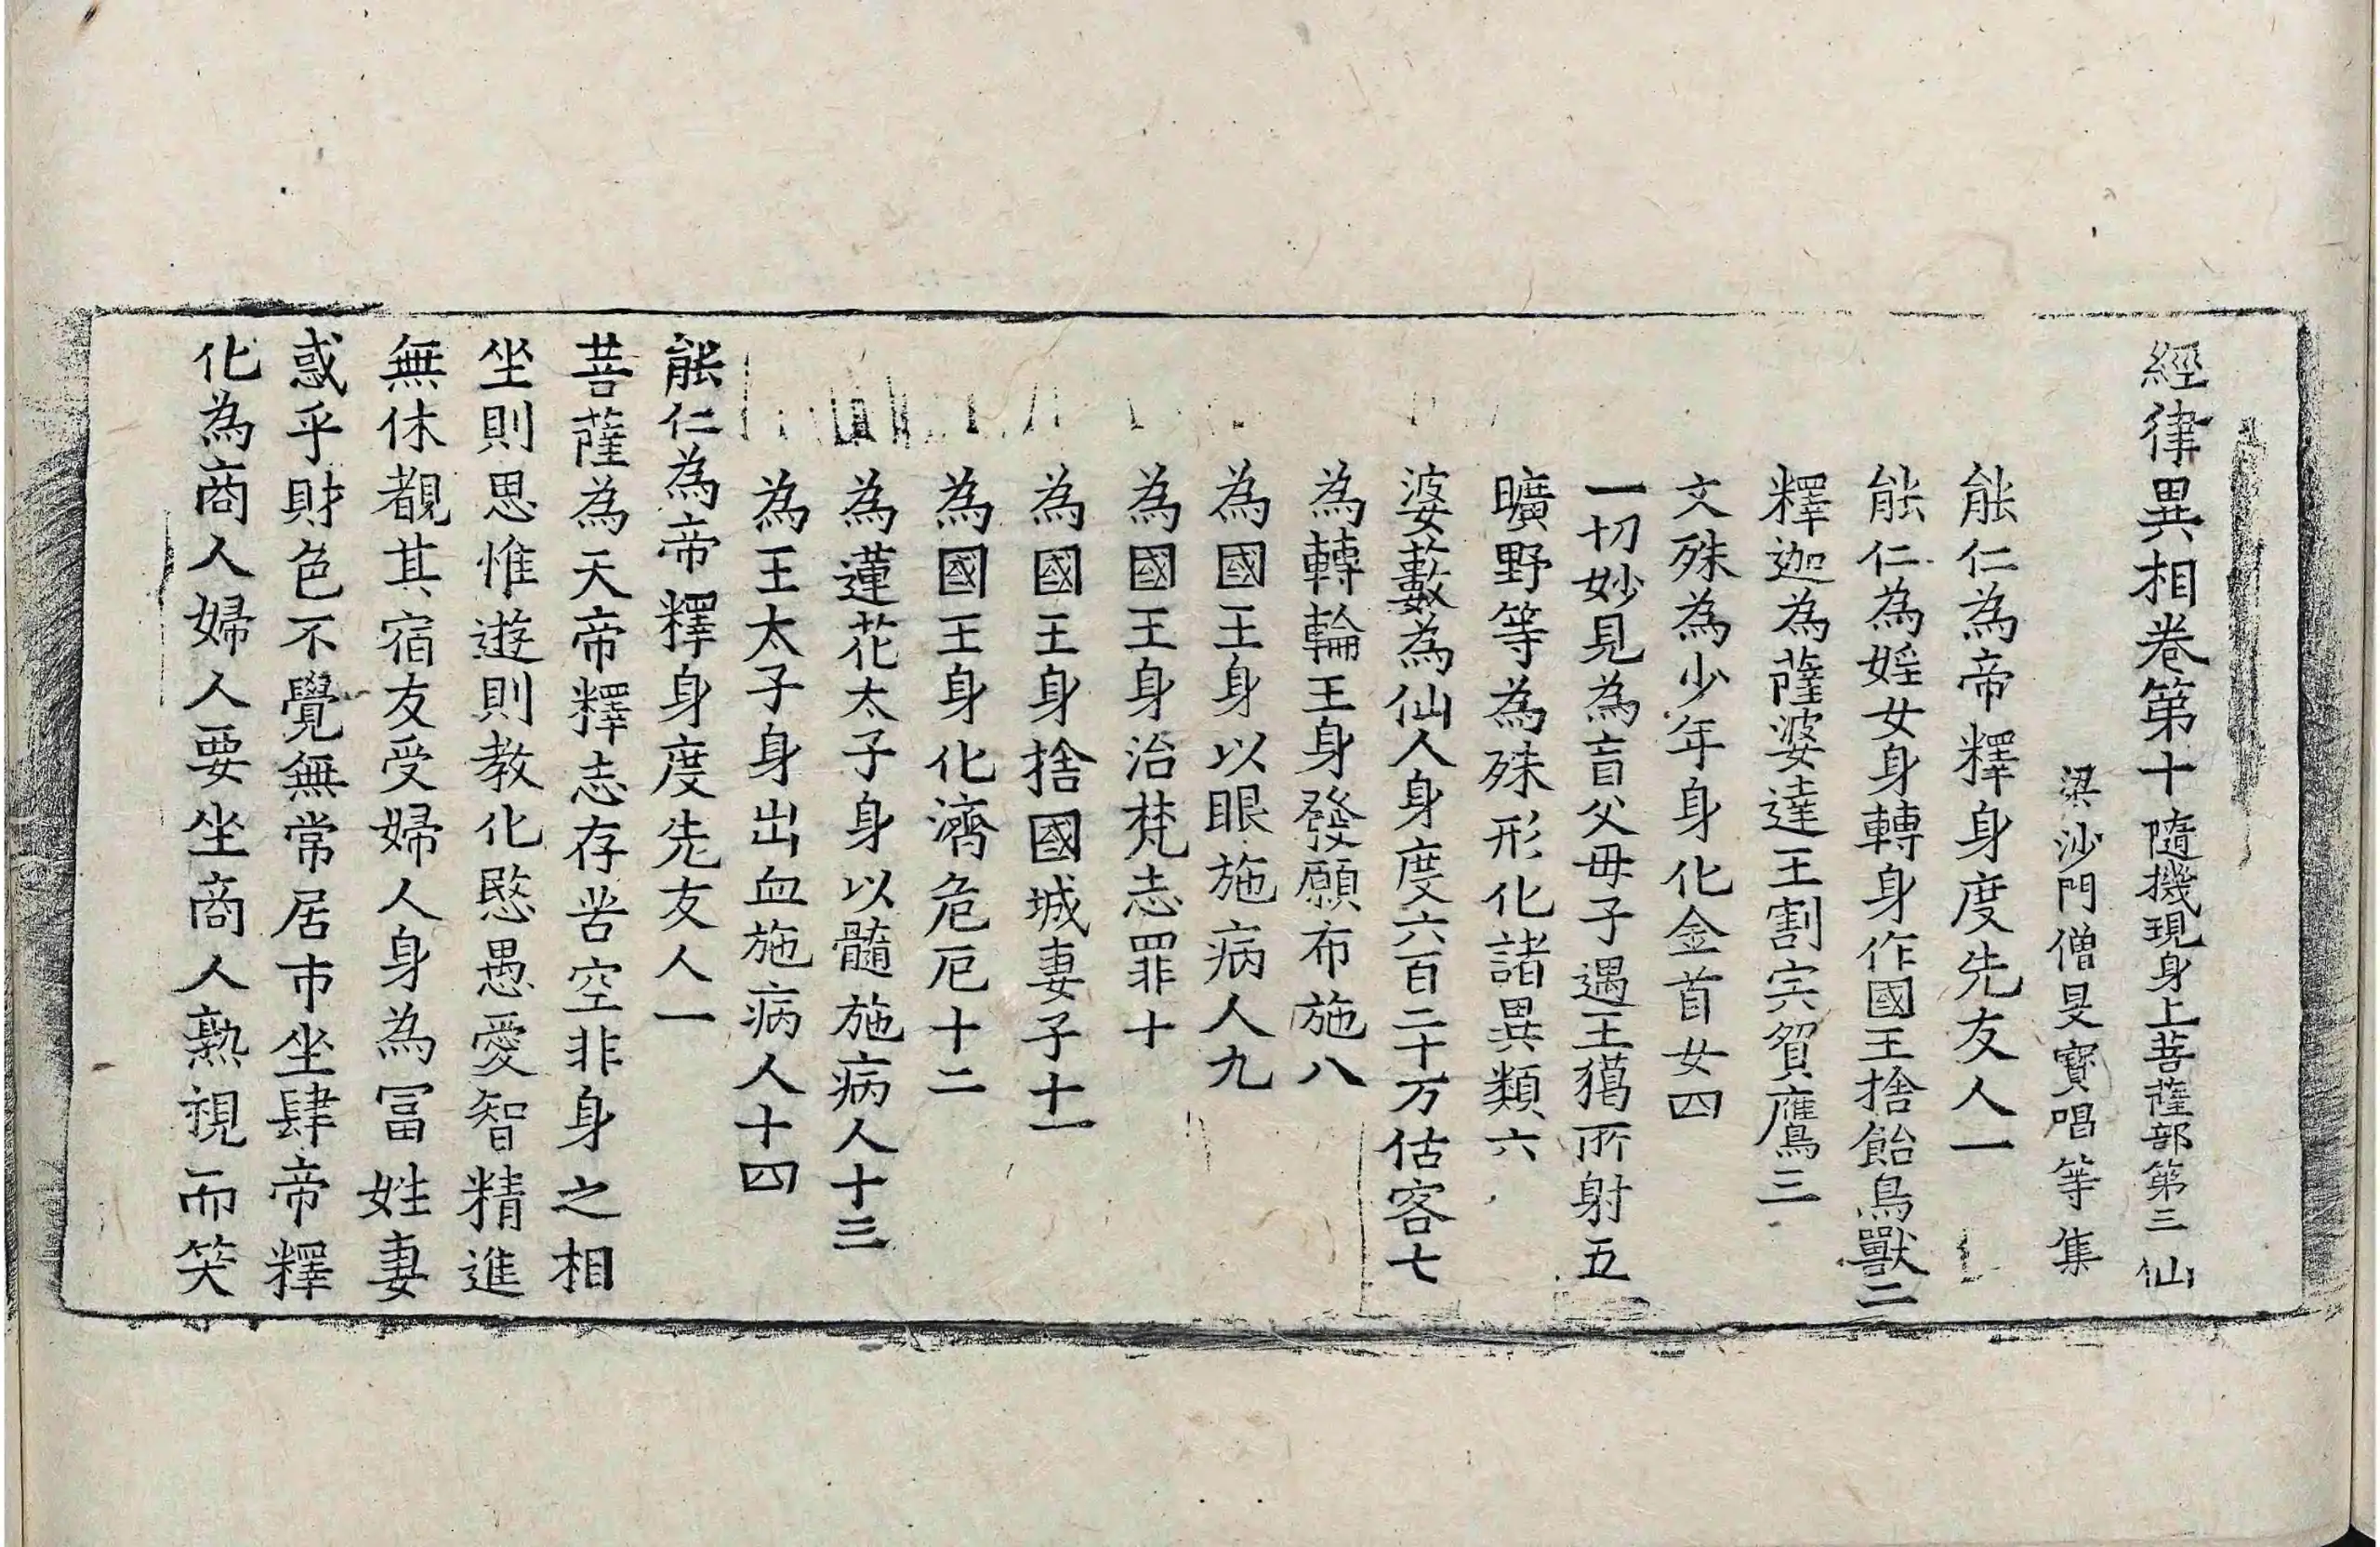 經律異相卷第十 隨機現身上菩薩部第三 仙
梁沙門僧旻寶唱等集
能仁為帝釋身度先友人一
能仁為婬女身轉身作國王捨飴鳥獸二
釋迦為薩婆達王割宍貿鷹三
文殊為少年身化金首女四
一切妙見為盲父母子遇王獦所射五
曠野等為殊形化諸異類六
婆藪為仙人身度六百二十万估客七
為轉輪王身發願布施八
為國王身以眼施病人九
為國王身治梵志罪十
為國王身捨國城妻子十一
為國王身化濟危厄十二
為蓮花太子身以髓施病人十三
為王太子身出血施病人十四
能仁為帝釋身度先友人一
菩薩為天帝釋志存苦空非身之相
坐則思惟遊則教化愍愚愛智精進
無休覩其宿友受婦人身為冨姓妻
惑乎財色不覺無常居市坐肆帝釋
化為商人婦人要坐商人熟視而笑